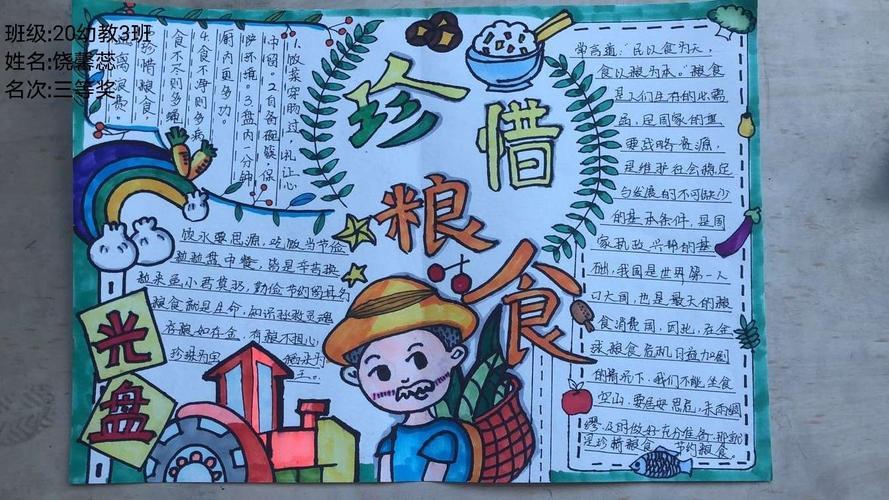 班级:20幼教3班
姓名:饶馨蕊
名次:三等奖
珍惜
粮食
1.饭菜穿肠过,礼让心
中留。2.自备碗筷,保
护环境。3.盘内一分钟
厨内更多功。
4.食不净则多病
食不尽则多
珍惜粮食,
远离浪费。
饮水要思源,吃饭当节俭
粒粒盘中餐,皆是辛苦换
粒米虽小君莫扔,勤俭节约留美名
粮食就是生命,知识拯救灵魂
存粮如存金,有粮不担心
珍珠为宝
稻米为
王。
光
盘
常言道:“民以食为天,
食以粮为本。”粮食
是人们生存的必需
品,是国家的重
要战略资源,
是维护社会稳定
与发展的不可缺少
的基本条件,是国
家执政兴邦的基
础,我国是世界第一人
口大国,也是最大的粮
食消费国,因此,在全
球粮食危机日益加剧
的情况下,我们不能坐食
空山,要居安思危,未雨绸
缪,及时做好充分准备,那就
是珍惜粮食,节约粮食。